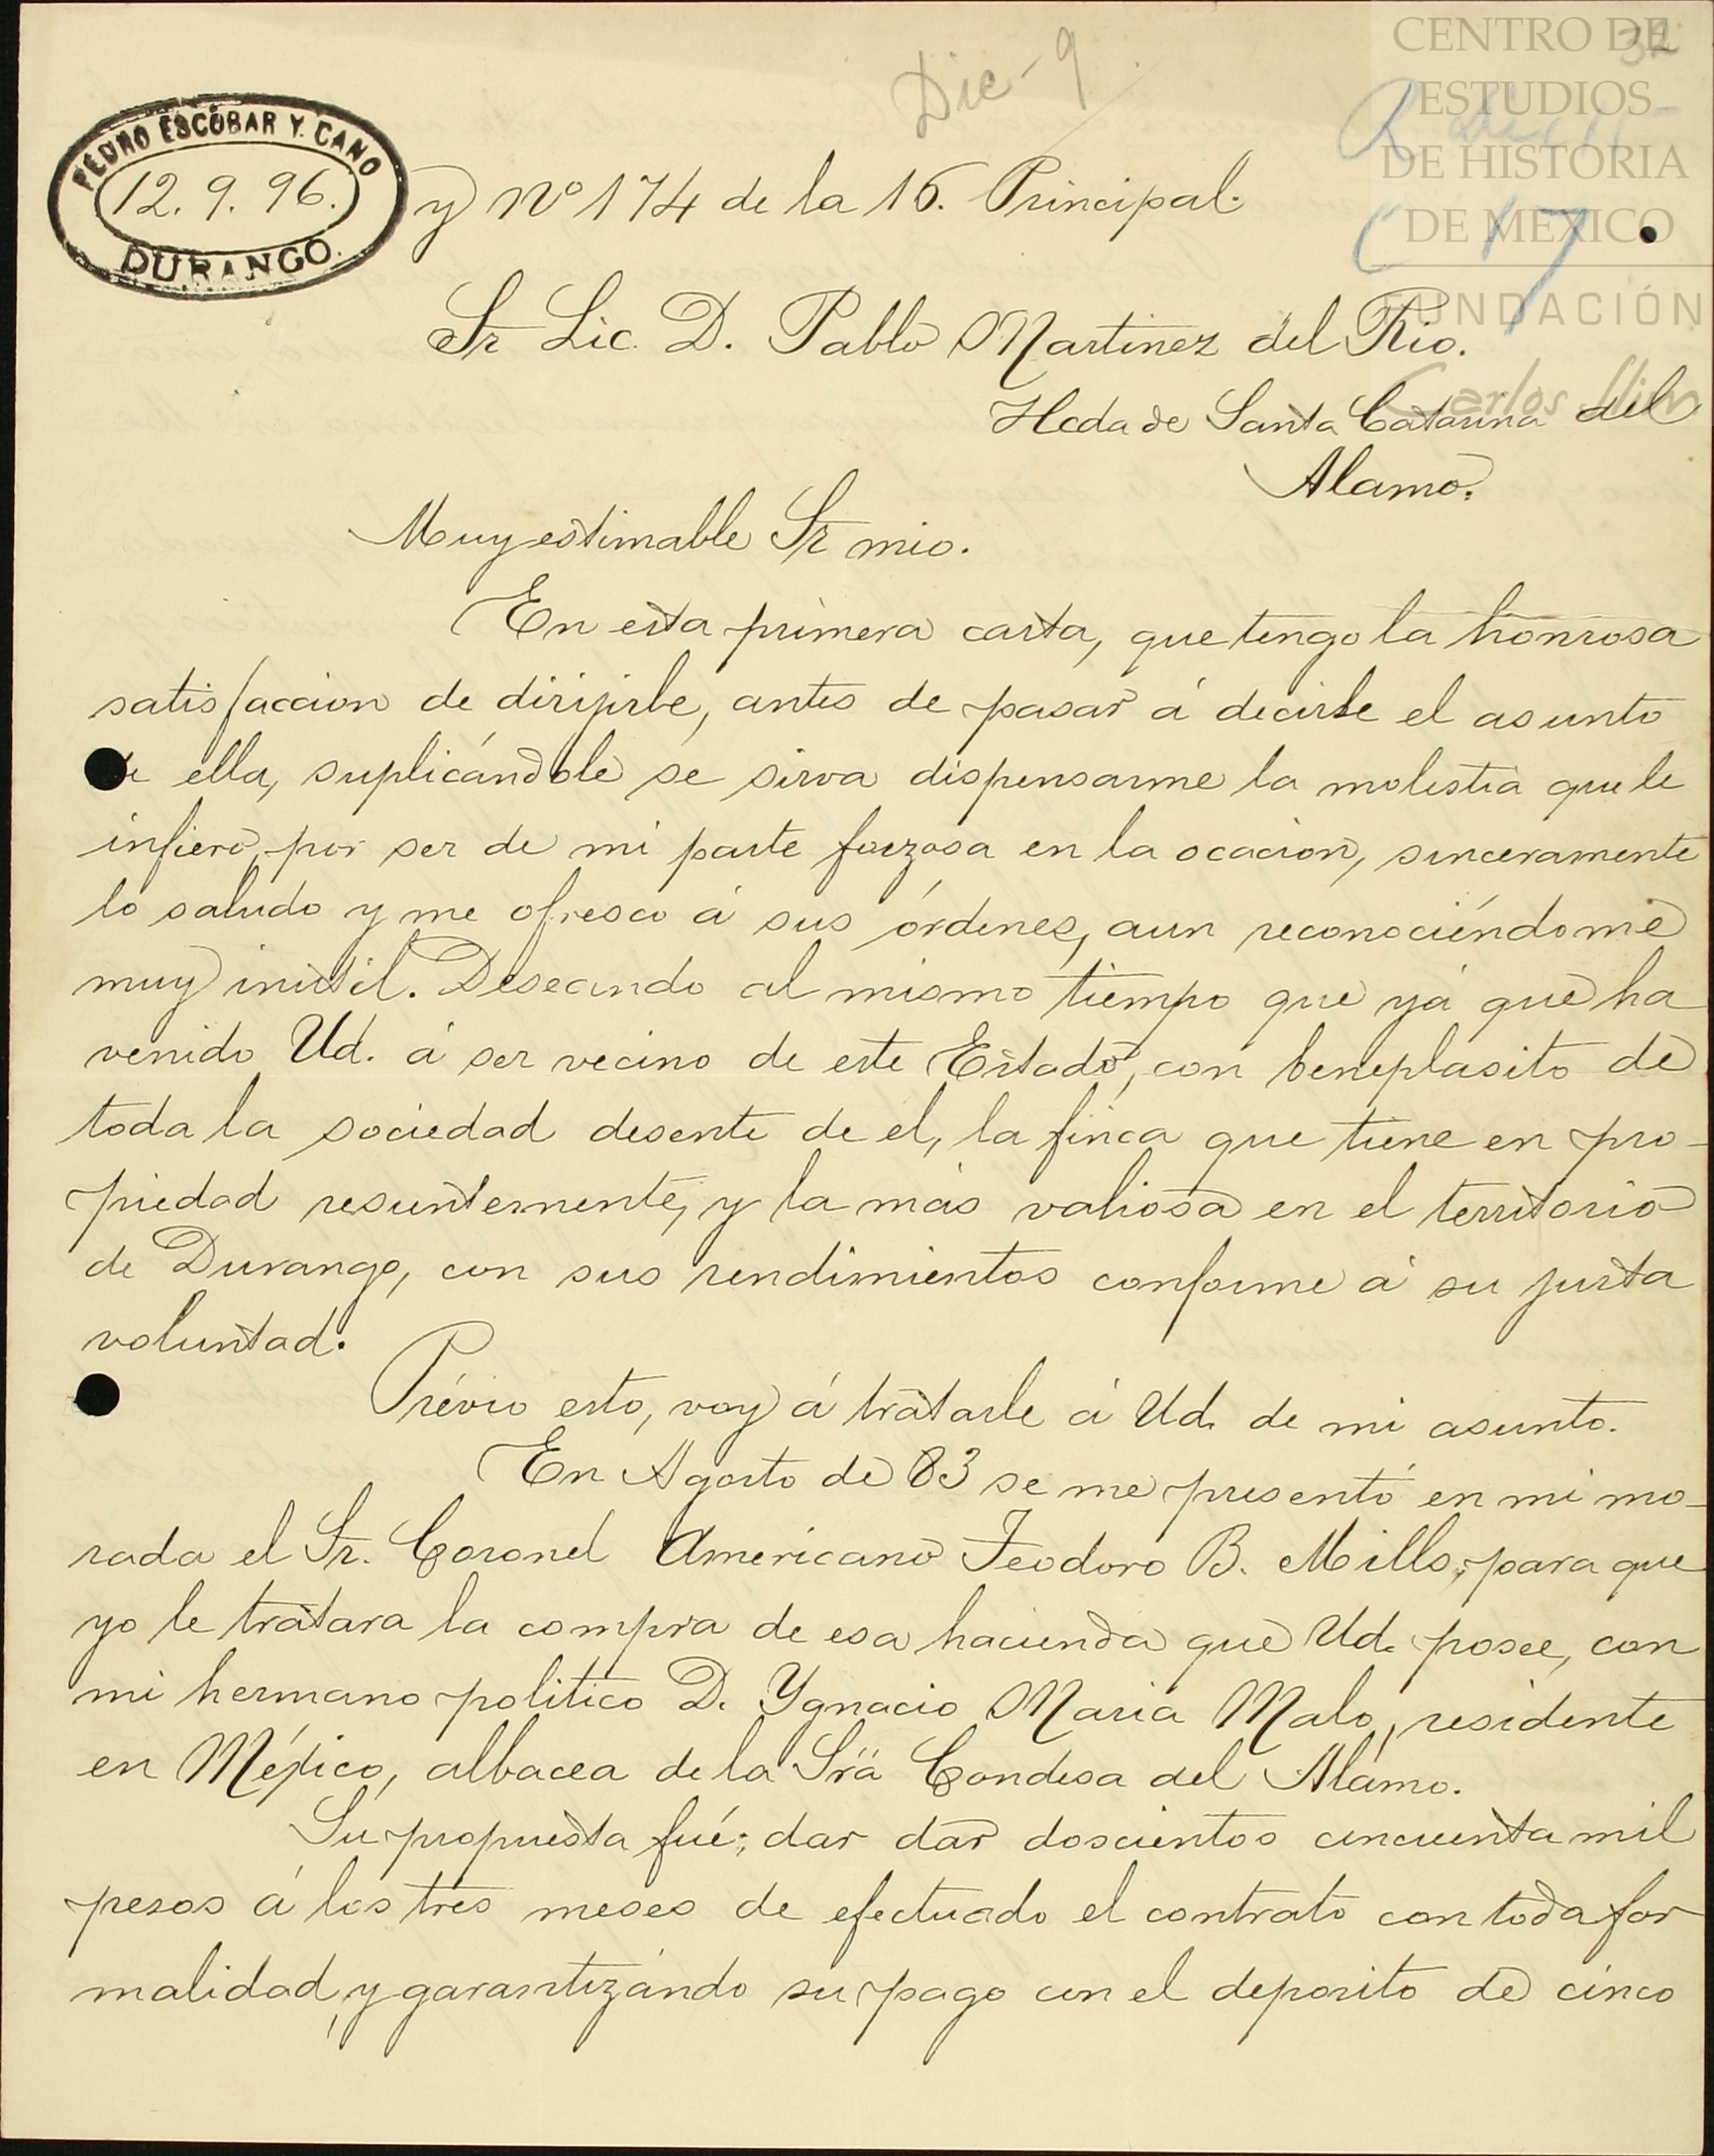 Dic-9
CENTRO DE
ESTUDIOS
DE HISTORIA
DE MEXICO
FUNDACIÓN
Carlos Slim
32
17
PEDRO ESCOBAR Y. CANO
12. 9. 96.
DURANGO.
y Nº 174 de la 16. Principal.
Sr Lic. D. Pablo Martinez del Rio.
Hcda de Santa Catarina del
Alamo.
Muy estimable Sr mio.
En esta primera carta, que tengo la honrosa
satisfaccion de dirijirle, antes de pasar á decirle el asunto
de ella, suplicándole se sirva dispensarme la molestia que le
infiero, por ser de mi parte forzosa en la ocacion, sinceramente
lo saludo y me ofresco á sus órdenes, aun reconociéndome
muy inútil. Deseando al mismo tiempo que yá que ha
venido Ud. á ser vecino de este Estado, con beneplasito de
toda la sociedad desente de el, la finca que tiene en pro-
piedad resuntemente, y la más valiosa en el territorio
de Durango, con sus rendimientos conforme á su justa
voluntad.
Prévio esto, voy á tratarle á Ud. de mi asunto.
En Agosto de 83 se me presentó en mi mo-
rada el Sr. Coronel Americano Teodoro B. Mills, para que
yo le tratara la compra de esa hacienda que Ud. posee, con
mi hermano politico D. Ygnacio Maria Malo, residente
en Méjico, albacea de la Sra Condesa del Alamo.
Su propuesta fué; dar dar doscientos cincuenta mil
pesos á los tres meses de efectuado el contrato con toda for
malidad, y garantizándo su pago con el deposito de cinco